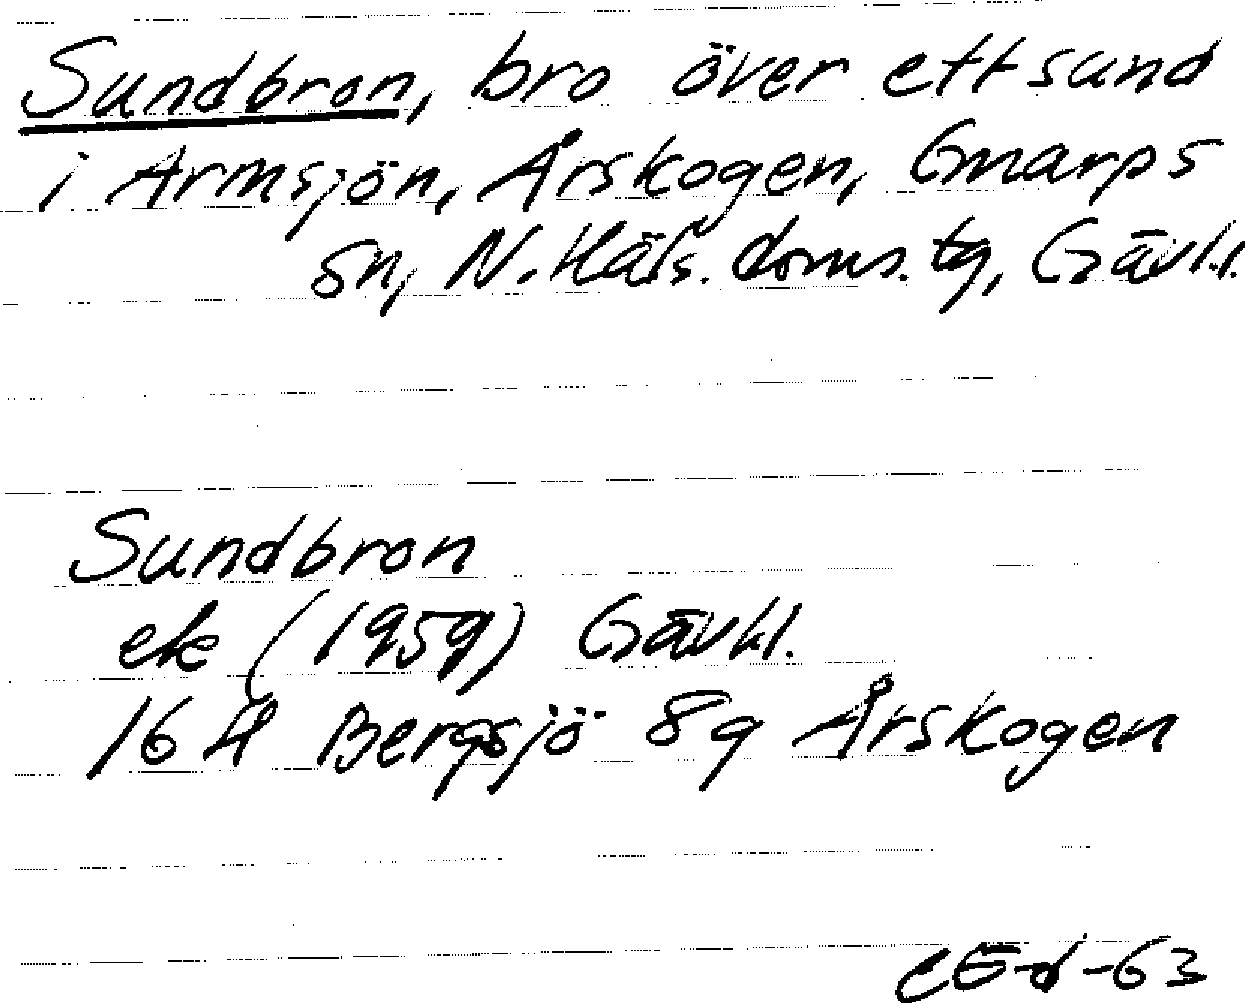 Sundbron, bro över ett sund
i Armsjön, Årskogen, Gnarps
sn, N. Häls. doms. tg, Gävl.l.
Sundbron
ek (1959) Gävl.l.
16 H Bergsjö 8g Årskogen
-63